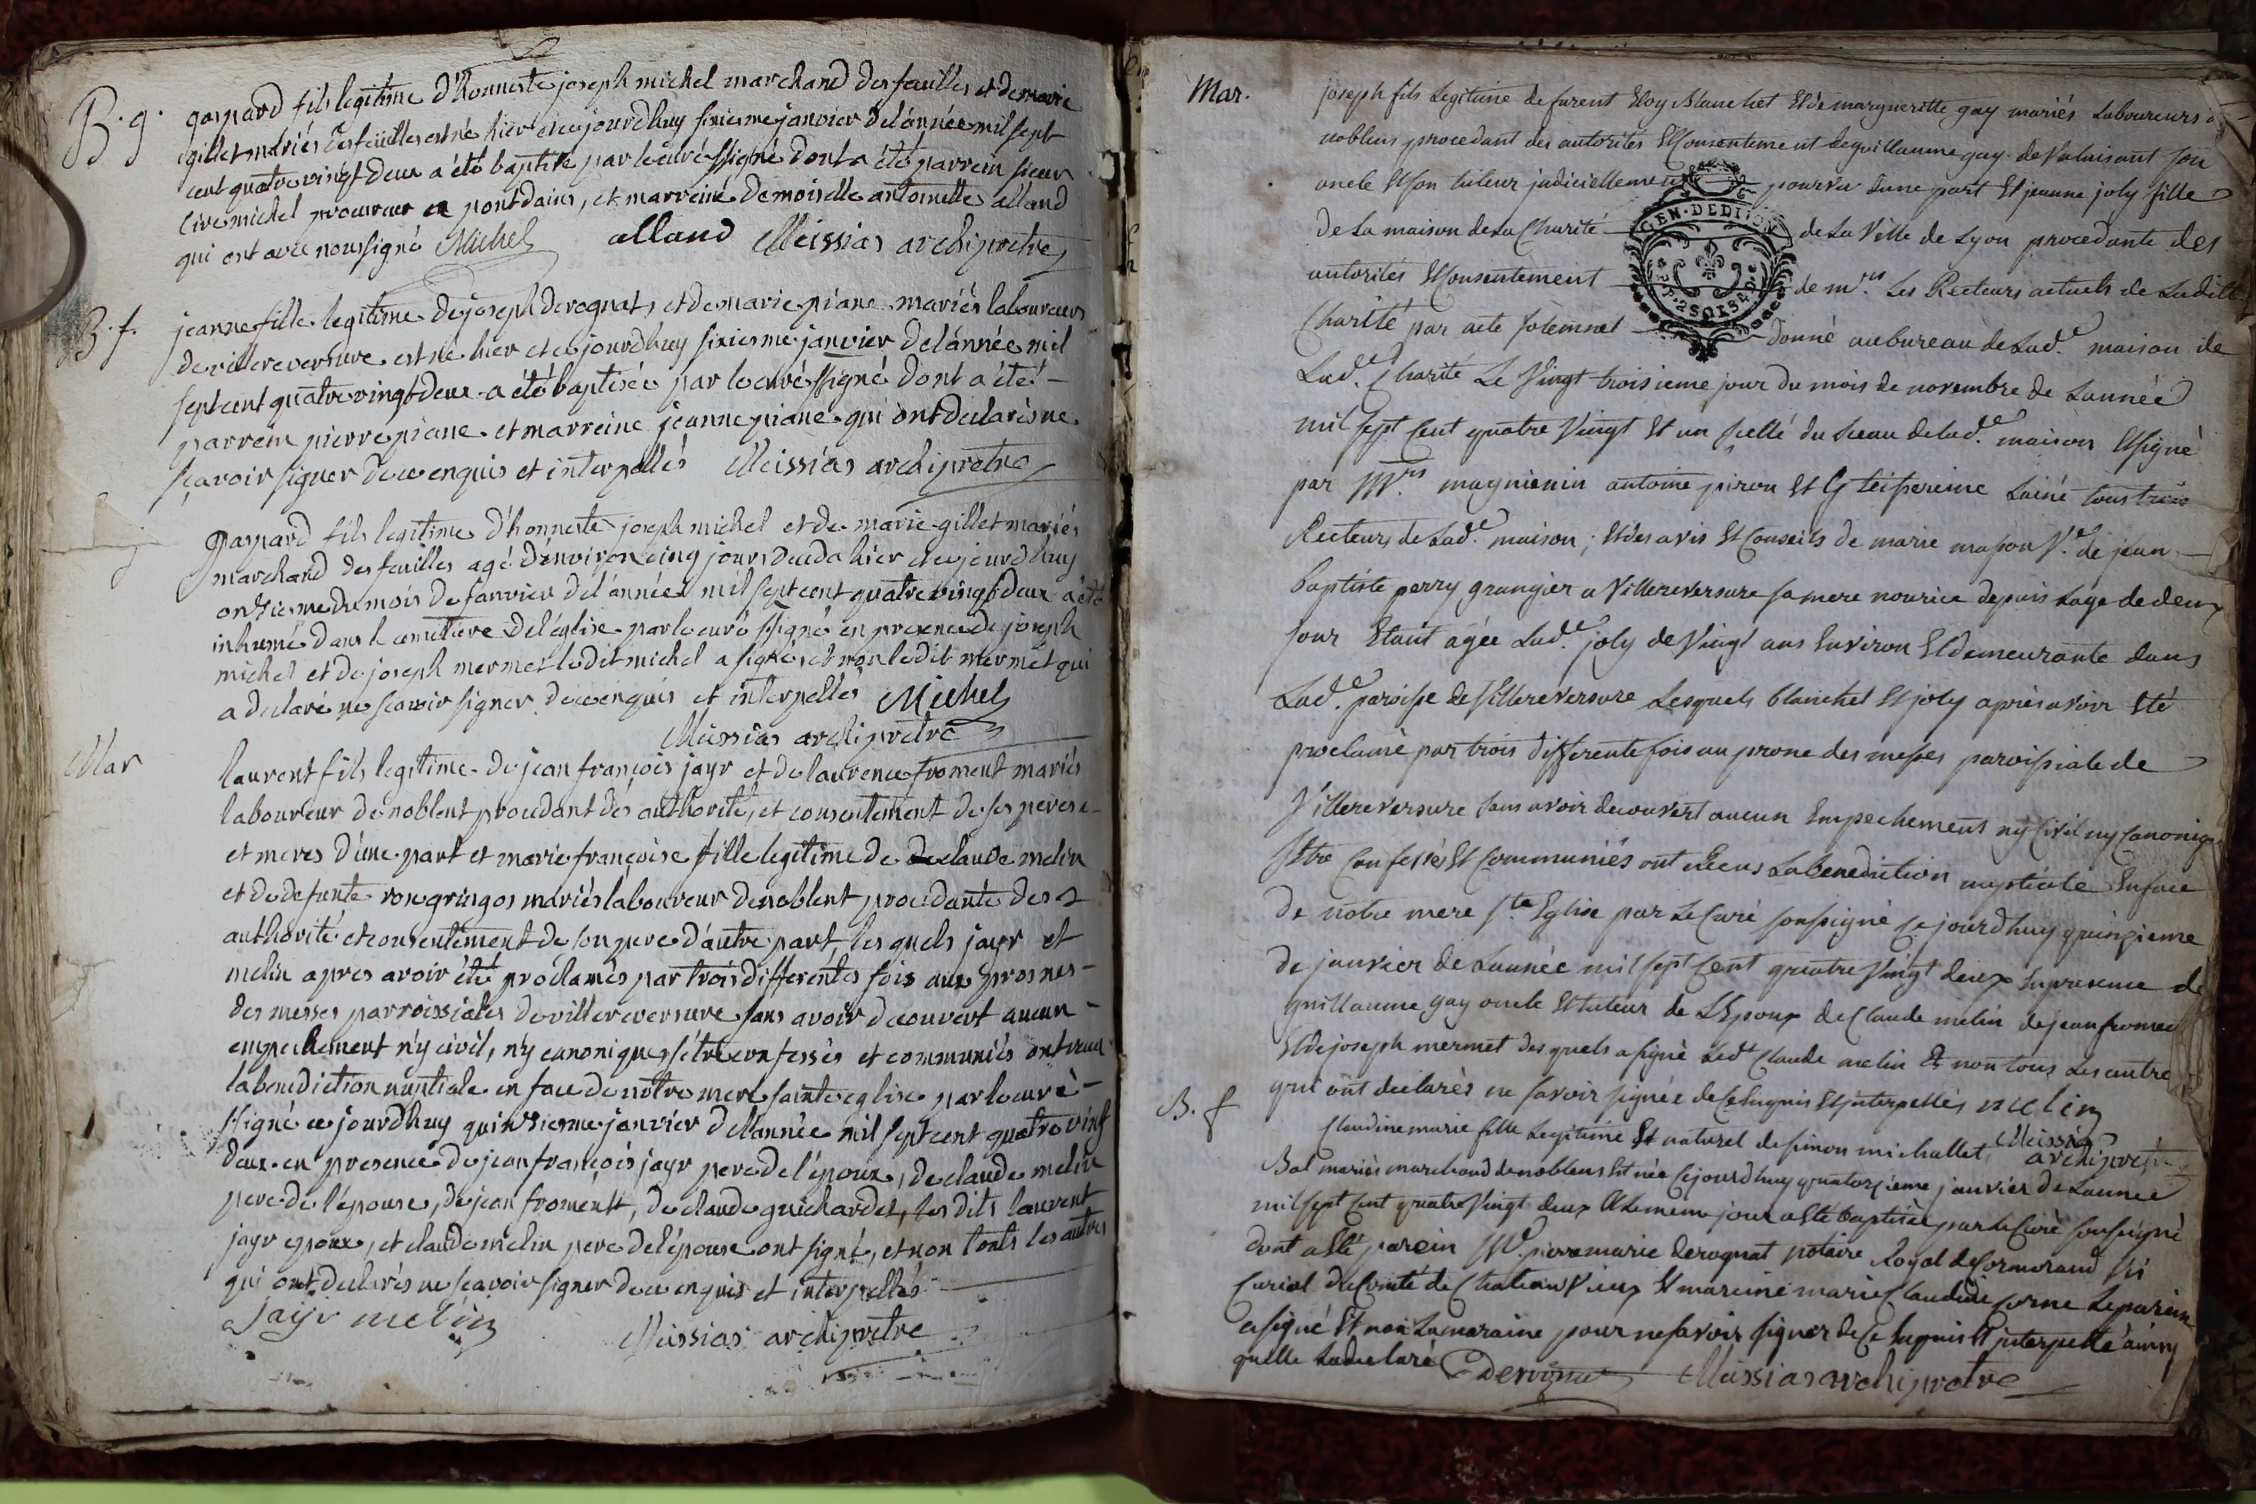 B. g.
gaspard fils legitime d'honneste joseph michel marchand des feuilles et de marie
gillet mariés des feuilles est né hier et ce jourd'huy sixiesme janvier de l'année mil sept
cent quatre vingt deux a été baptisé par le curé ssigné dont a été parrein sieur
michel procureur pontdains, et marreine demoiselle antoinette alland
qui ont avec nous signé Michel alland Meissias archipretre
B. f.
jeanne fille legitime de joseph derognat, et de marie piane mariés laboureurs
de villereversure est né hier et ce jourd'huy sixiesme janvier de l'année mil
sept cent quatre vingt deux a été baptisée par le curé ssigné dont a été
parrein pierre piane et marreine jeanne piane qui ont declarés ne
scavoir signer de ce enquis et interpellés Meissias archipretre
gaspard fils legitime d'honneste joseph michel et de marie gillet mariés
marchand des feuilles agé d'environ cinq jours decedé hier et ce jourd'huy
onziesme du mois de janvier de l'année mil sept cent quatre vingt deux a été
inhumé dans le cemetiere de l'église par le curé ssigné en presence de joseph
michel et de joseph mermet ledit michel a signé, et non ledit mermet qui
a declaré ne scavoir signer de ce enquis et interpellés Michel
Meissias archipretre
Mar
laurent fils legitime de jean françois jayr et de laurence froment mariés
laboureur de noblent procedant des authorité, et consentement de ses peres
et meres d'une part et marie françoise fille legitime de claude melin
et de defunte rose gringos mariés laboureur de noblent procedante des
authorité et consentement de son pere d'autre part, les quels jayr et
melin apres avoir été proclamés par trois differentes fois aux prosnes
des messes parroissiales de villereversure sans avoir decouvert aucun
empechement n'y civil, n'y canonique s'être confessés et communiés ont receu
la benediction nuptiale en face de nôtre mere sainte eglise par le curé
ssigné ce jourd'huy quinziesme janvier de l'année mil sept cent quatre vingt
deux en presence de jean françois jayr pere de l'époux, de claude melin
pere de l'épouse, de jean froment, de claude guichardet, les dits laurent
jayr epoux, et claude melin pere de l'épouse ont signé, et non touts les autres
qui ont declarés ne scavoir signer de ce enquis et interpellés
Jayr melin
Meissias archipretre
Mar.
joseph fils Legitime de furent Eloy Blanchet Et de marguerette gay mariés Laboureurs a
noblens procedant des autorités Et Consentement de guillaume gay de Valuisant son
oncle Et son tuteur judiciellement pourvu dune part Et jeanne joly fille
de La maison de La Charité de La Ville de Lyon procedante des
autorités Et Consentement de mrs. Les Recteurs actuels de Laditte
Charité par acte solemnel donné au bureau de Lade. maison de
Lade. Charité Le Vingt troisieme jour du mois de novembre de Lannée
mil sept Cent quatre Vingt Et un scellé du sceau de lade. maison Et signé
par Mrs. magnienin antoine piron Et Lainé tous trois
Recteurs de Lade. maison; Et des avis Et Conseils de marie mason Ve. de jean
Baptiste perry grangier a Villereversure sa mere nourice depuis Lage de deux
jour Etant agée Lade. joly de Vingt ans Environ Et demeurante dans
Lade. paroisse de Villereversure Lesquels blanchet Et joly apries avoir Eté
proclamé par trois differente fois au prone des messes paroissiale de
Villereversure sans avoir decouvert aucun Empechement ny Civil ny Canonique
setre Confessés Et Communiés ont Receus La Benediction nuptiale En face
de notre mere ste Eglise par Le Curé soussigné Ce jourdhuy quinzieme
de janvier de Lannée mil sept Cent quatre Vingt deux En presence de
guillaume gay oncle Et tuteur de LEpoux de Claude melin de jean froment
Et de joseph mermet des quels a signé Led. Claude melin Et non tous Les autre
qui ont declarés ne savoir signée de Ce Enquis Et interpellés melin
Meissias
archipretre
B. f
Claudine marie fille Legitime Et naturel de simon michallet
Bal mariés marchand de noblens Est née Cejourdhuy quatorzieme janvier de Lannée
mil sept Cent quatre Vingt deux Et Le meme jour a Eté baptisée par Le Curé soussigné
dont a Eté parein Me. pierre marie derognat notaire Royal de Cormorand
Curial du Comté de Chateau Vieux Et mareine marie Claudine Corne Le parein
a signé Et non La maraine pour ne savoir signer de Ce Enquis Et interpellé ainsy
quelle La declaré Derognat Meissias archipretre
GEN. DEDIJON